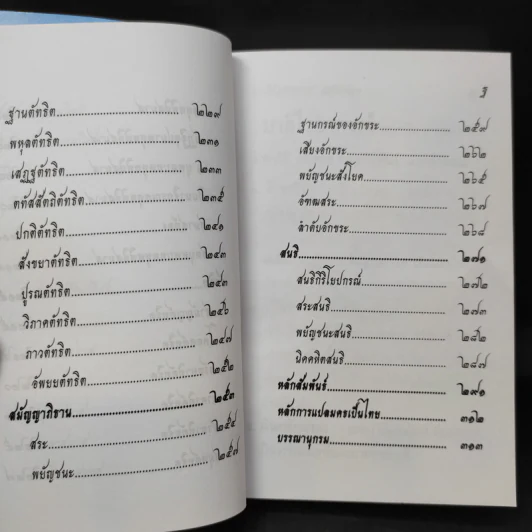 ฐานตัทธิต ๒๒๙
พหุลตัทธิต ๒๓๑
เสฏฐตัทธิต ๒๓๓
ตทัสสัตถิตัทธิต ๒๓๕
ปกติตัทธิต ๒๔๑
สังขยาตัทธิต ๒๔๓
ปูรณตัทธิต
วิภาคตัทธิต ๒๔๖
ภาวตัทธิต ๒๔๗
อัพยยตัทธิต ๒๕๒
สมัญญาภิธาน ๒๕๓
สระ ๒๕๔
พยัญชนะ ๒๕๗
ฐานกรณ์ของอักขระ ๒๕๙
เสียงอักขระ ๒๖๒
พยัญชนะสังโยค ๒๖๕
อัฑฒสระ ๒๖๗
ลำดับอักขระ ๒๖๘
สนธิ ๒๗๑
สนธิกิริโยปกรณ์ ๒๗๒
สระสนธิ ๒๗๓
พยัญชนะสนธิ ๒๘๒
นิคคหิตสนธิ ๒๘๗
หลักสัมพันธ์ ๒๙๑
หลักการแปลมคธเป็นไทย ๓๑๒
บรรณานุกรม ๓๑๓